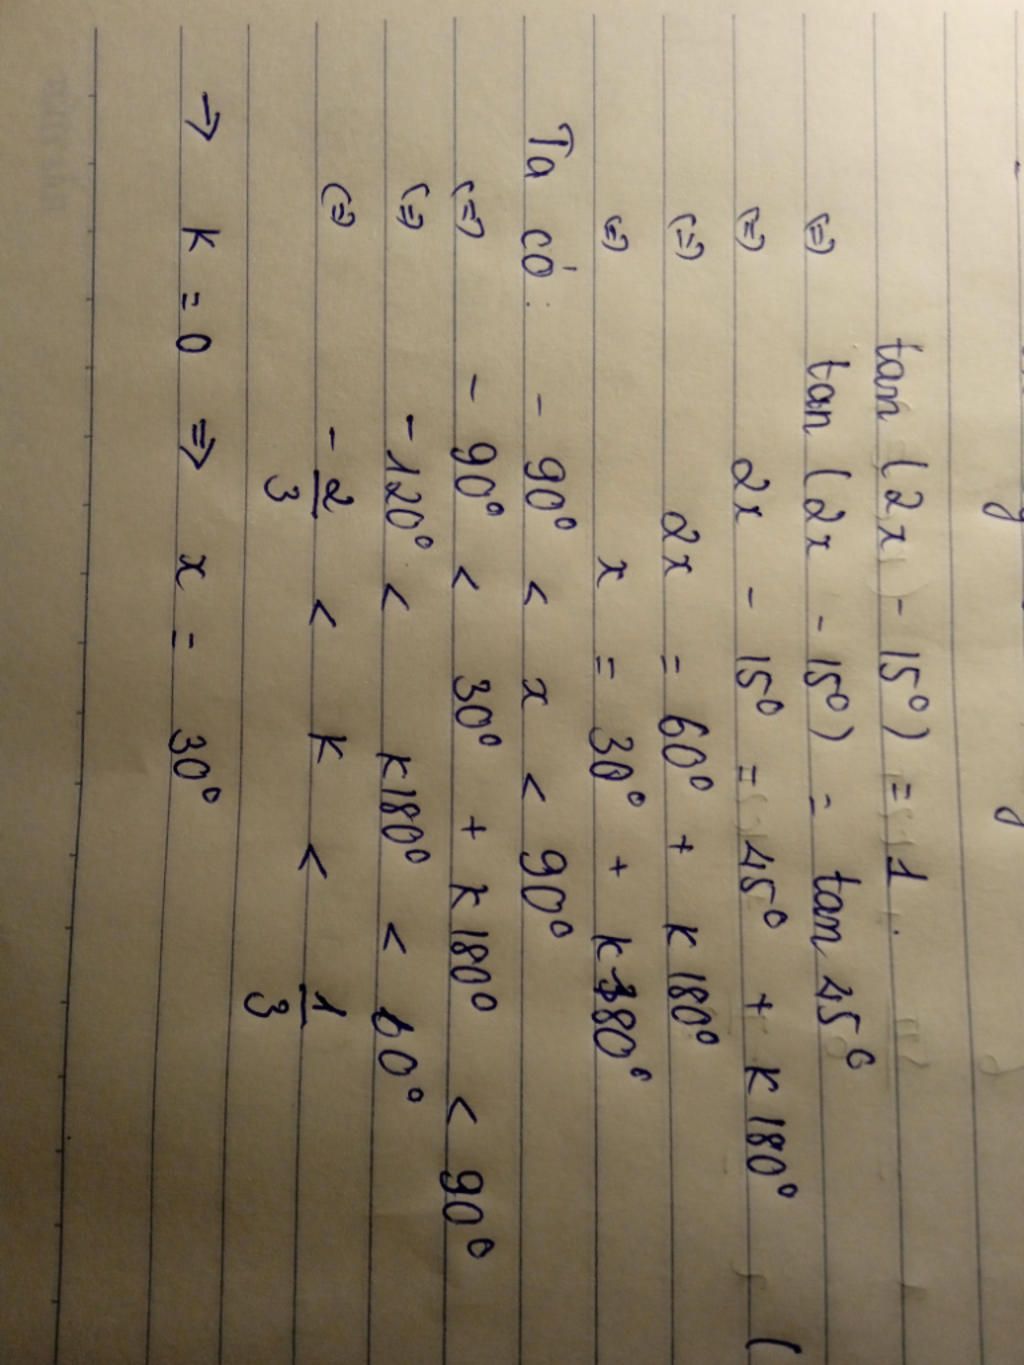 tan (2x - 15°) = 1.
(=) tan (2x - 15°) = tan 45°
(=) 2x - 15° = 45° + k 180°
(=) 2x = 60° + k 180°
(=) x = 30° + k 180°
Ta có: - 90° < x < 90°
(=) - 90° < 30° + k 180° < 90°
(=) - 120° < k180° < 60°
(=) - 2/3 < k < 1/3
→ k = 0 ⇒ x = 30°